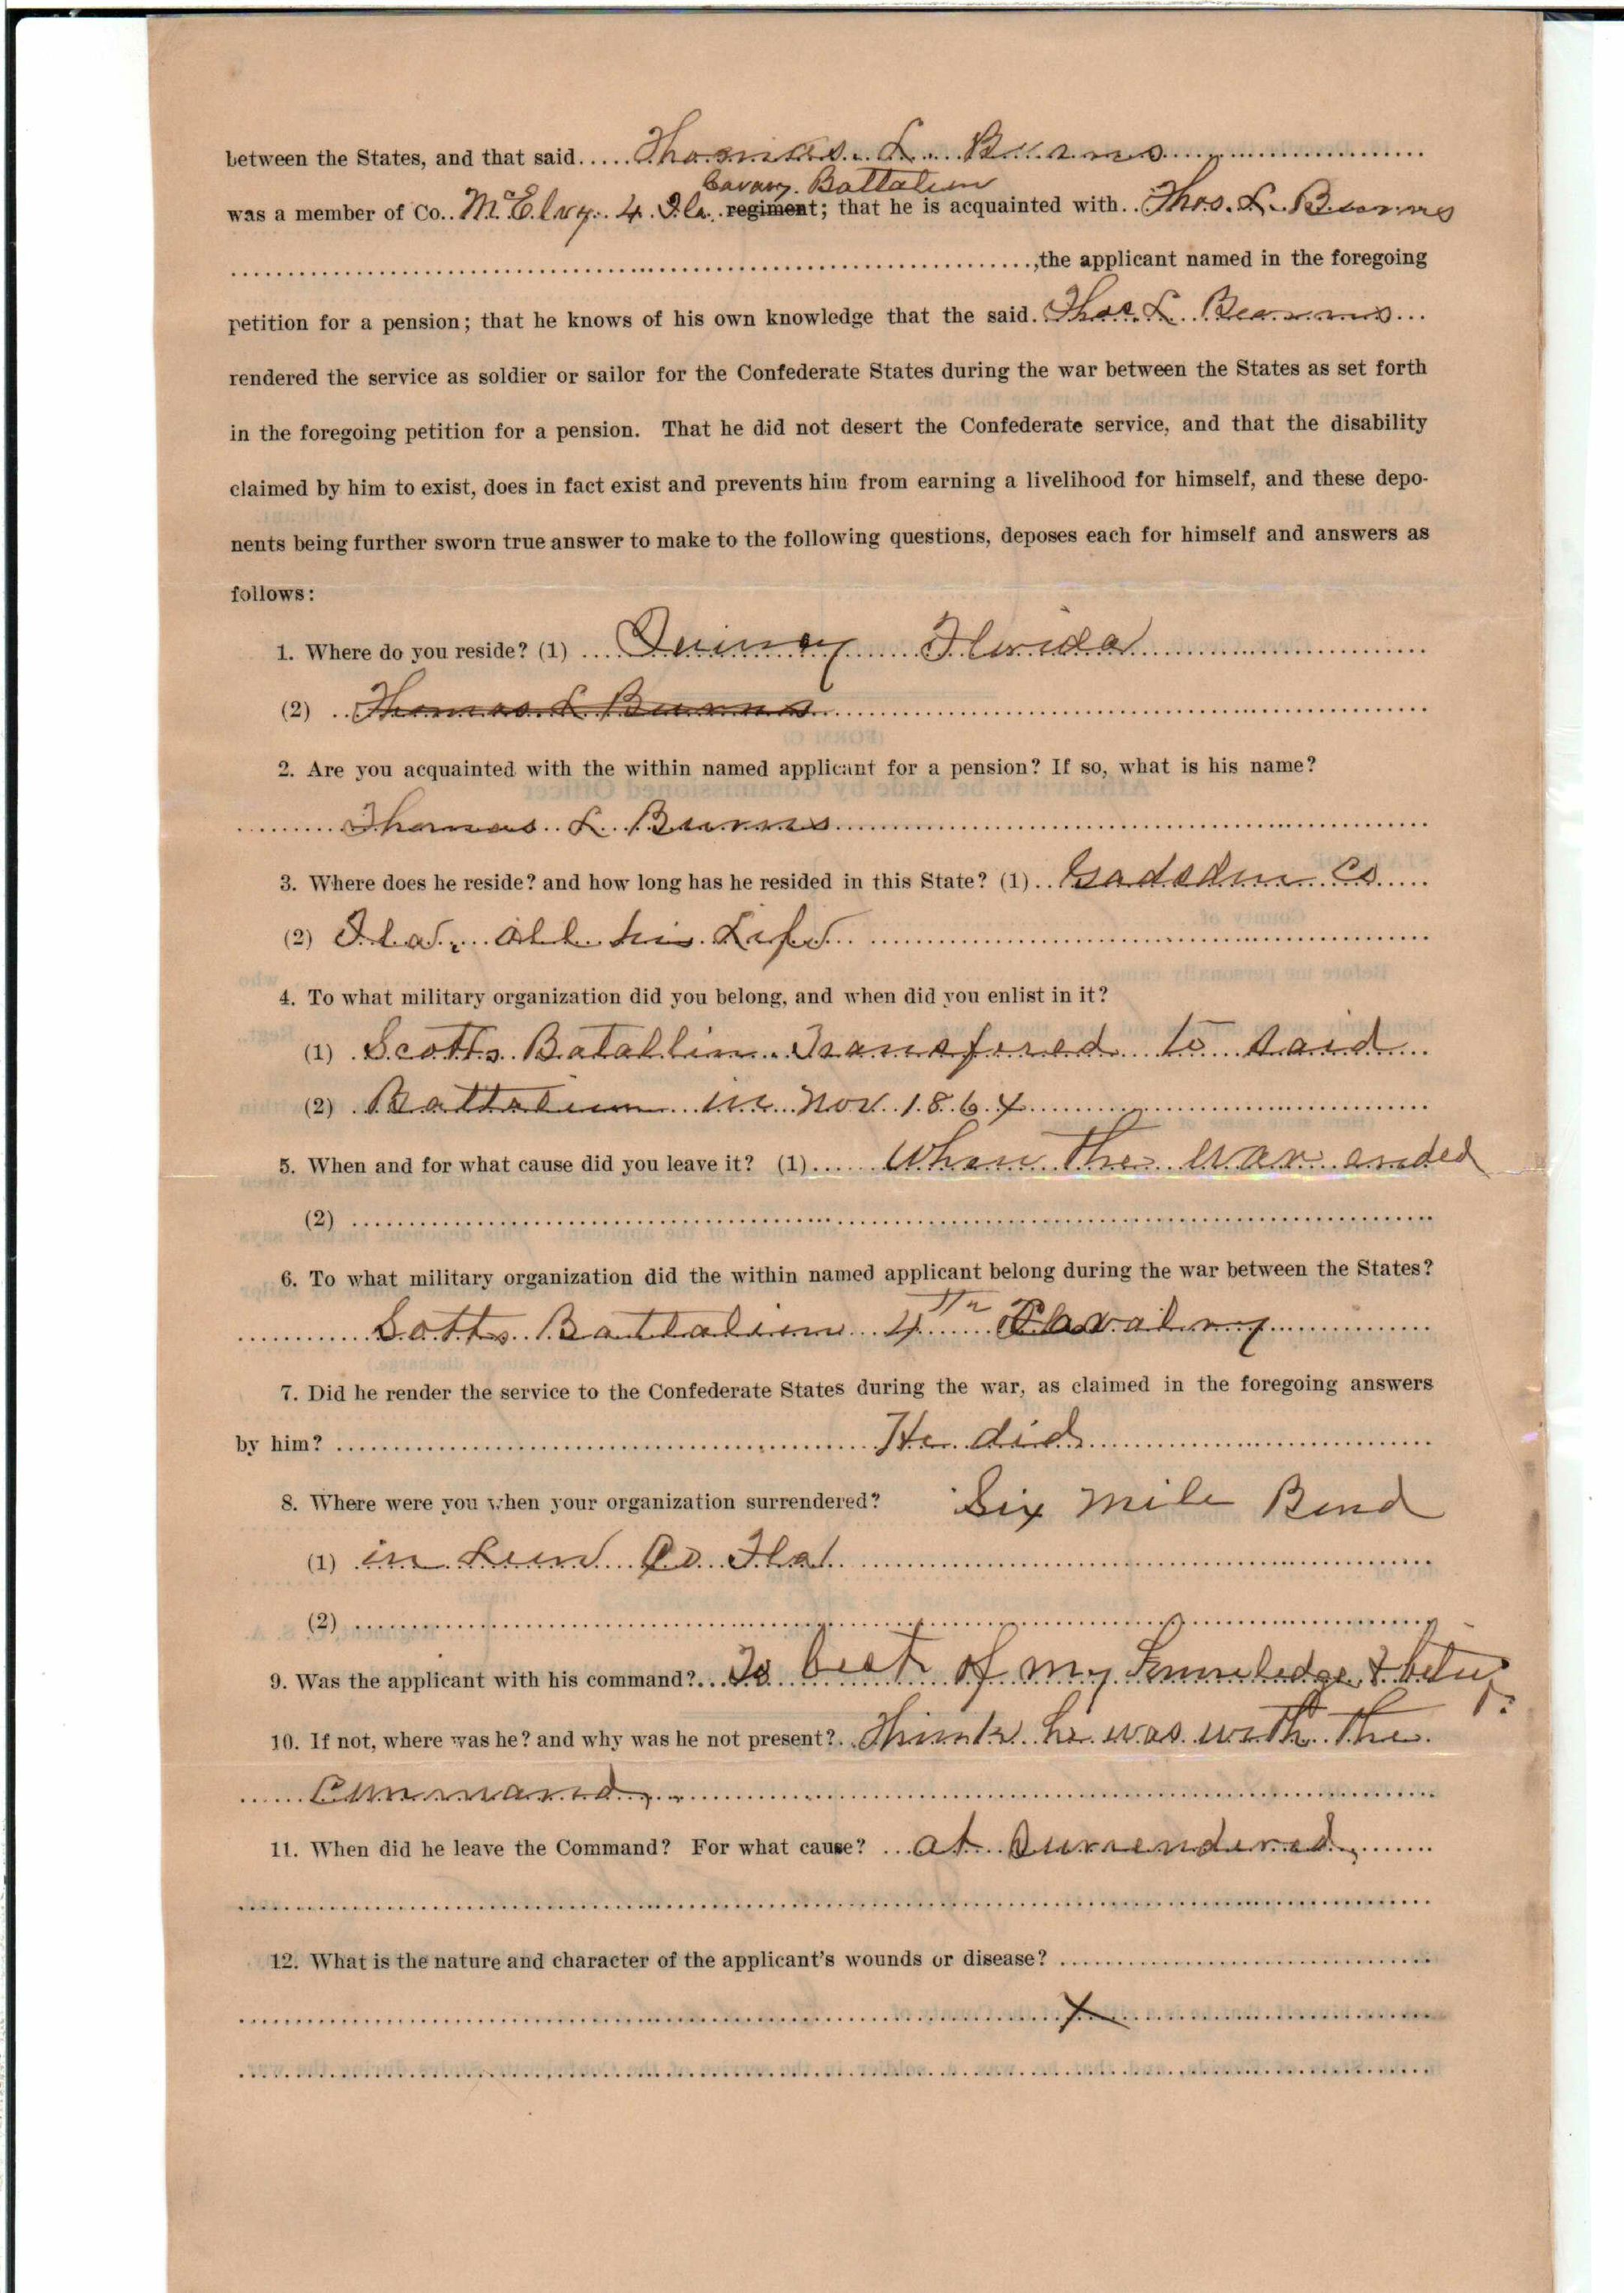 between the States, and that said Thomas L. Burns
Cavary. Battalion
was a member of Co. McElvy. 4. Fla. regiment; that he is acquainted with Thos. L. Burns
, the applicant named in the foregoing
petition for a pension; that he knows of his own knowledge that the said Thos. L. Burns
rendered the service as soldier or sailor for the Confederate States during the war between the States as set forth
in the foregoing petition for a pension. That he did not desert the Confederate service, and that the disability
claimed by him to exist, does in fact exist and prevents him from earning a livelihood for himself, and these depo-
nents being further sworn true answer to make to the following questions, deposes each for himself and answers as
follows:
1. Where do you reside? (1) Quincy Florida
(2) Thomas L Burns
2. Are you acquainted with the within named applicant for a pension? If so, what is his name?
Thomas L. Burns
3. Where does he reside? and how long has he resided in this State? (1) Gadsden Co
(2) Fla. all his Life
4. To what military organization did you belong, and when did you enlist in it?
(1) Scotts Batallion Transfered to said
(2) Battalion in Nov. 1864
5. When and for what cause did you leave it? (1) When the war ended
(2)
6. To what military organization did the within named applicant belong during the war between the States?
Scotts Battalion 4th Cavalry
7. Did he render the service to the Confederate States during the war, as claimed in the foregoing answers
by him? He did
8. Where were you when your organization surrendered? Six Mile Bend
(1) in Leon Co Fla
(2)
9. Was the applicant with his command? To best of my Knowledge & belief.
10. If not, where was he? and why was he not present? Think he was with the
Command,
11. When did he leave the Command? For what cause? at Surrendered,
12. What is the nature and character of the applicant's wounds or disease?
X